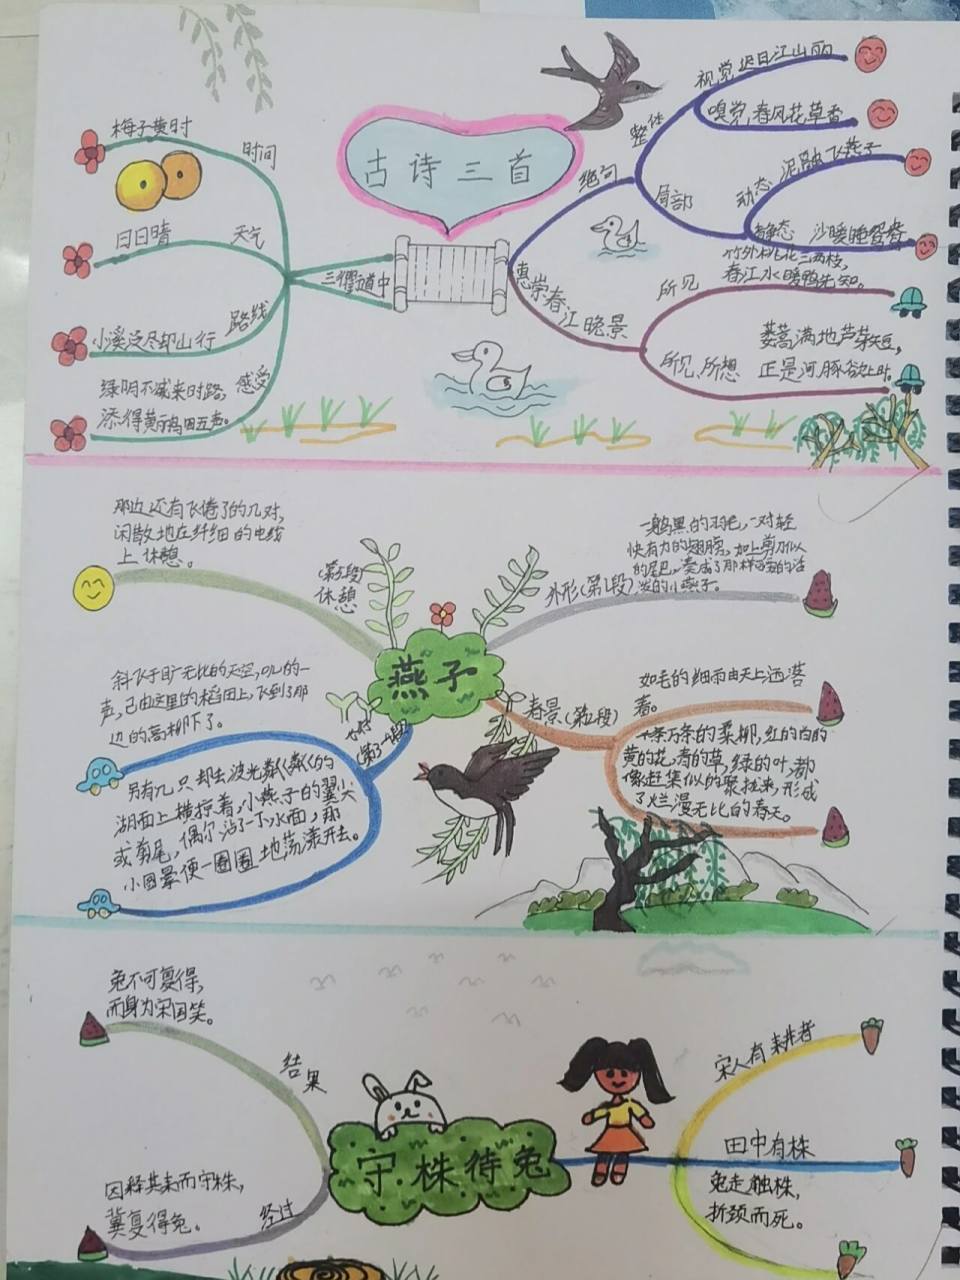 古诗三首
梅子黄时
时间
日日晴
天气
三衢道中
小溪泛尽却山行
路线
绿阴不减来时路,
感受
添得黄鹂四五声。
绝句
整体
视觉
迟日江山丽
嗅觉
春风花草香
局部
动态
泥融飞燕子
静态
沙暖睡鸳鸯
惠崇春江晚景
所见
竹外桃花三两枝,
春江水暖鸭先知。
所见、所想
蒌蒿满地芦芽短,
正是河豚欲上时。
燕子
那边还有飞倦了的几对,
闲散地在纤细的电线
上休憩。
休憩
斜飞于旷无比的天空,叽的一
声,已由这里的稻田上,飞到了那
边的高柳下了。
另有几只却在波光粼粼的
湖面上横掠着,小燕子的翼尖
或剪尾,偶尔沾了一下水面,那
小圆晕便一圈圈地荡漾开去。
外形(第1段)
一身乌黑的羽毛,一对轻
快有力的翅膀,加上剪刀似
的尾巴,凑成了那样可爱的活
泼的小燕子。
春景(第2段)
如毛的细雨由天上洒落
着。
千条万条的柔柳,红的白的
黄的花,青的草,绿的叶,都
像赶集似的聚拢来,形成
了烂漫无比的春天。
守株待兔
兔不可复得,
而身为宋国笑。
结果
因释其耒而守株,
冀复得兔。
经过
宋人有耕者
田中有株
兔走触株,
折颈而死。